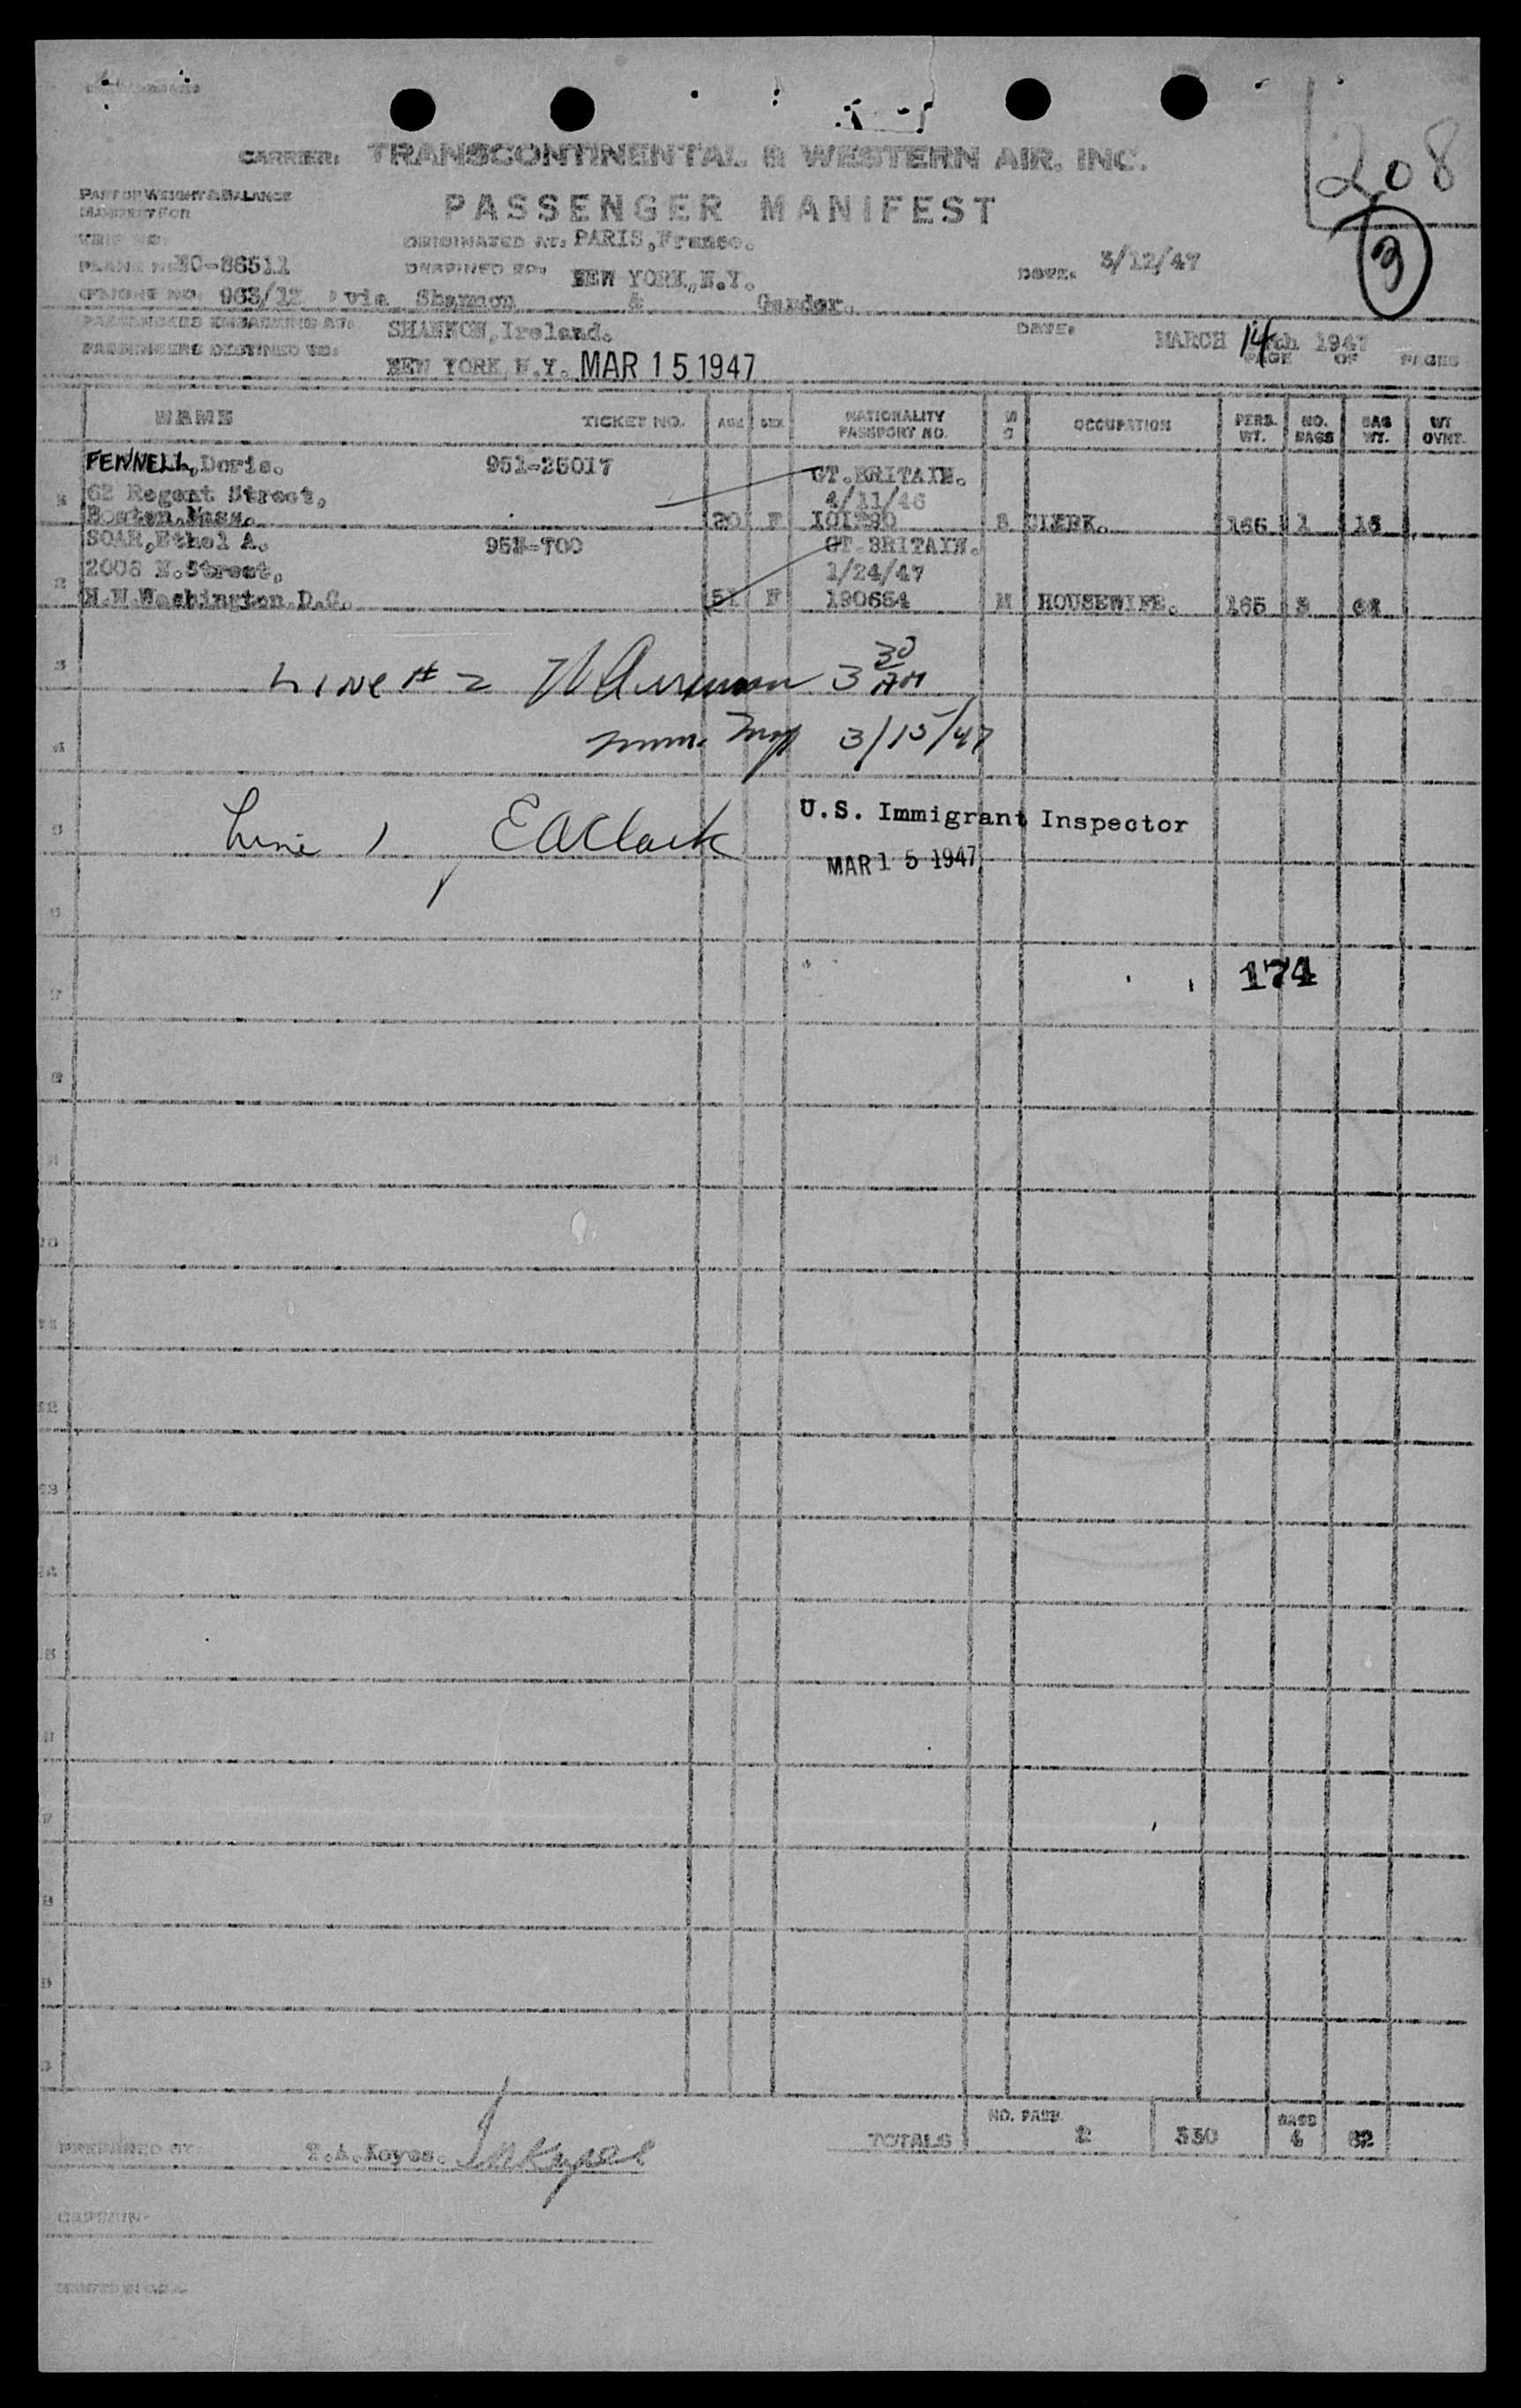 208
3
CARRIER: TRANSCONTINENTAL & WESTERN AIR. INC.
PASSENGER MANIFEST
PART OF WEIGHT & BALANCE
MANIFEST FOR
TRIP NO.
ORIGINATED AT: PARIS, France.
PLANE NO. NC-86511
DESTINED TO: NEW YORK, N.Y.
DATE. 3/12/47
FLIGHT NO. 963/12 via Shannon & Gander.
PASSENGERS EMBARKING AT: SHANNON, Ireland.
DATE: MARCH 14th 1947
PASSENGERS DESTINED TO: NEW YORK, N.Y. MAR 15 1947
PAGE OF PAGES
NAME TICKET NO. AGE SEX NATIONALITY PASSPORT NO. S M OCCUPATION PERS. WT. NO. BAGS BAG WT. WT OVNT.
FENNELL, Doris. 951-25017 GT. BRITAIN.
62 Regent Street, 4/11/46
Boston, Mass. 20 F S CLERK. 165 1 16
SOAR, Ethel A. GT. BRITAIN.
2 2008 N. Street, 1/24/47
N.W. Washington D.C. 51 F 190654 M HOUSEWIFE. 165 3
3 Line # 2 3 30 AM
4 3/15/47
Line 1 E A Clark U.S. Immigrant Inspector
MAR 15 1947
174
NO. PASS. BAGS
TOTALS 2 330 4 82
PREPARED BY: T.A. Keyes.
CAPTAIN:
PRINTED IN U.S.A.